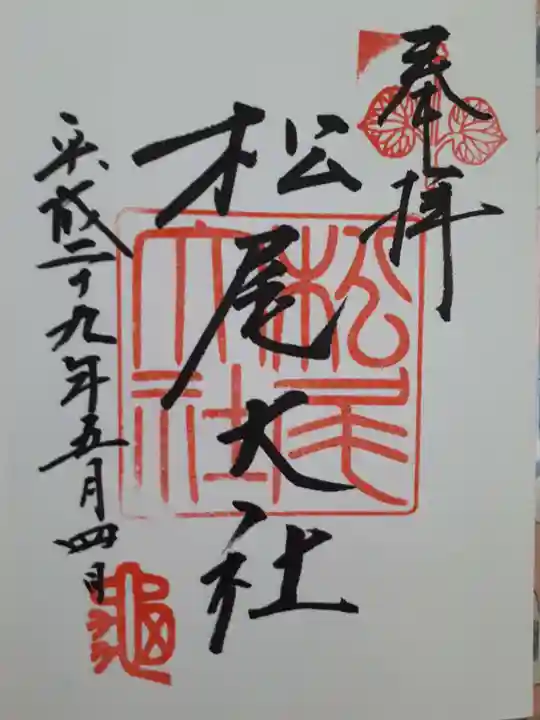 奉拝
松尾大社
松尾大社
平成二十九年五月四日